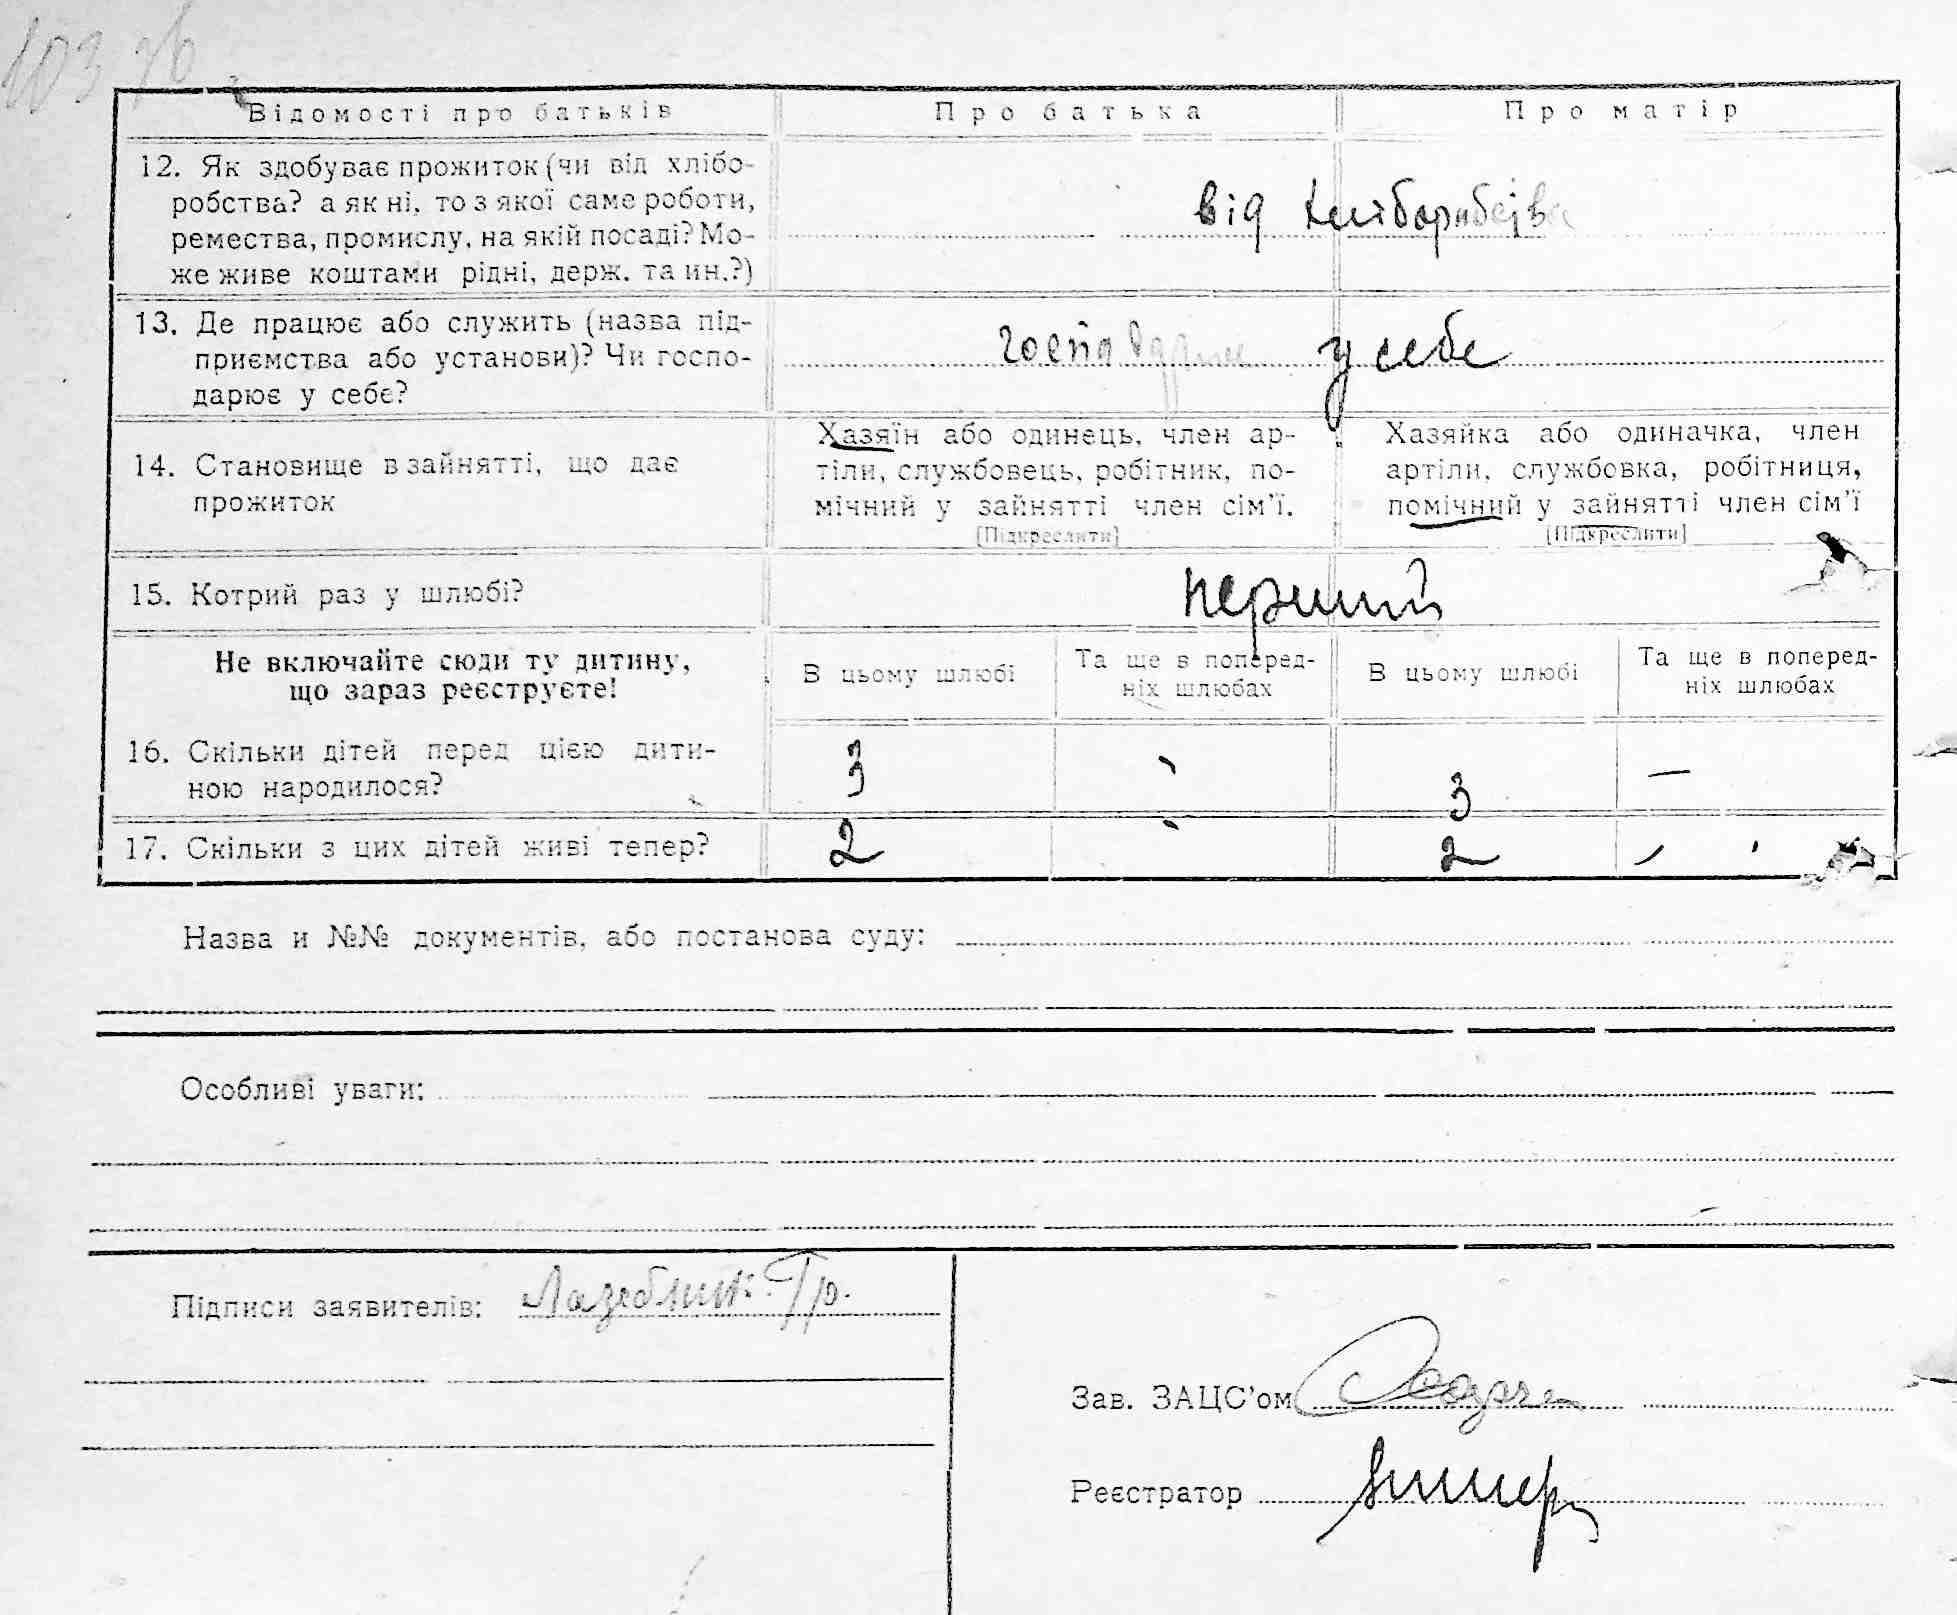 103 зв
Відомості про батьків
Про батька
Про матір
12. Як здобуває прожиток (чи від хлібо-
робства? а як ні, то з якої саме роботи,
ремества, промислу, на якій посаді? Мо-
же живе коштами рідні, держ. та ин.?)
від
13. Де працює або служить (назва під-
приємства або установи)? Чи госпо-
дарює у себе?
у себе
14. Становище в зайнятті, що дає
прожиток
Хазяїн або одинець, член ар-
тіли, службовець, робітник, по-
мічний у зайнятті член сім’ї.
[Підкреслити]
Хазяйка або одиначка, член
артіли, службовка, робітниця,
помічний у зайнятті член сім’ї
[Підкреслити]
15. Котрий раз у шлюбі?
перший
Не включайте сюди ту дитину,
що зараз реєструєте!
В цьому шлюбі
Та ще в поперед-
ніх шлюбах
В цьому шлюбі
Та ще в поперед-
ніх шлюбах
16. Скільки дітей перед цією дити-
ною народилося?
3
3 —
17. Скільки з цих дітей живі тепер?
2
2
Назва и №№ документів, або постанова суду:
Особливі уваги:
Підписи заявителів: Лазебник Гр.
Зав. ЗАЦС’ом
Реєстратор